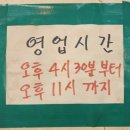 영업시간
오후 4시 30분 부터
오후 11시 까지